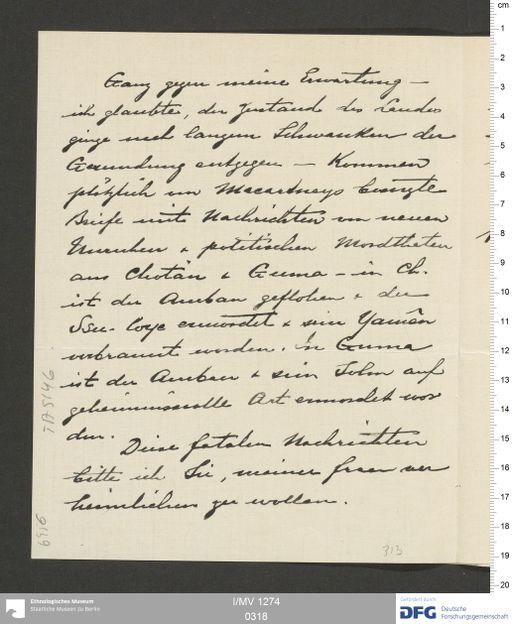 Ganz gegen meine Erwartung –
ich glaubte, der Zustand des Landes
ginge nach langem Schwanken der
Gesundung entgegen – kommen
plötzlich von Macartneys besorgte
Briefe mit Nachrichten von neuen
Unruhen & politischen Mordthaten
aus Chotän & Guma – in Ch.
ist der Amban geflohen & der
Ssu-loye ermordet & sein Yamên
verbrannt worden. In Guma
ist der Amban & sein Sohn auf
geheimnissvolle Art ermordet wor
den.
Diese fatalen Nachrichten
bitte ich Sie, meiner Frau ver
heimlichen zu wollen.
TA 5146
6916
313
cm
1
2
3
4
5
6
7
8
9
10
11
12
13
14
15
16
17
18
19
20
Ethnologisches Museum
Staatliche Museen zu Berlin
I/MV 1274
0318
Gefördert durch
DFG Deutsche
Forschungsgemeinschaft